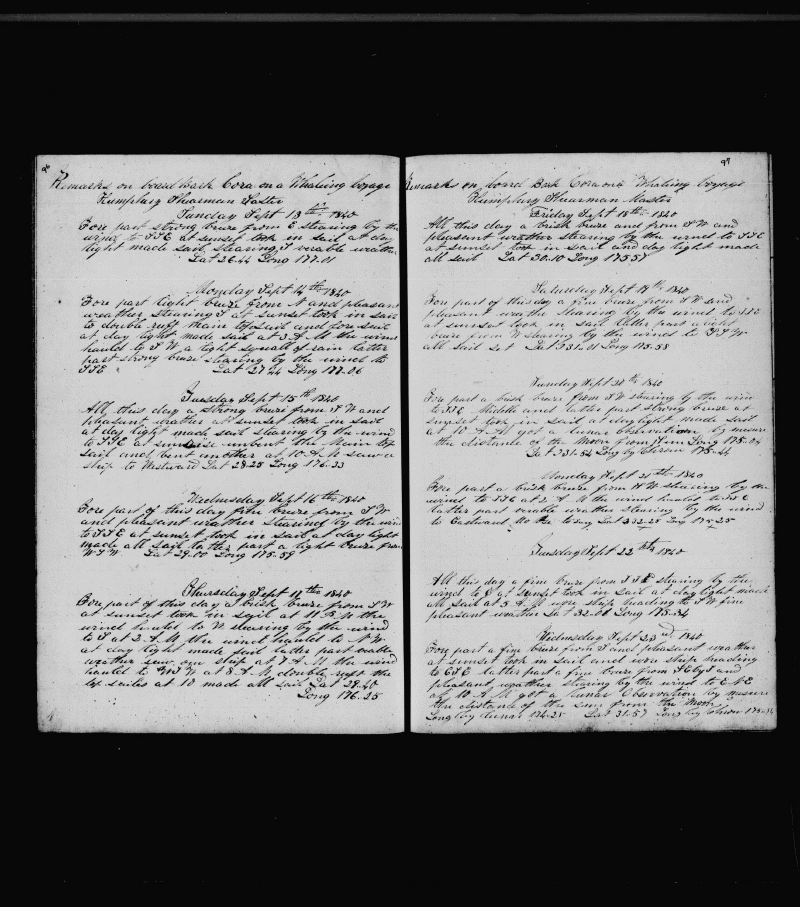 Remarks on board Bark Cora on a Whaleing Voyage
Humphrey Shearman Master
Sunday Sept 13th 1840
Fore part strong breze from E stearing by the
wind to SSE at sunset took in sail at day
light made sail stearing S verable weather
Lat 26.44 Long 177.01
Monday Sept 14th 1840
Fore part light breze from N and pleasant
weather stearing S at sunset took in sail
to double reff Main topsail and fore sail
at day light made sail at 3 A M the wind
hauld to S W a light squall of rain latter
part strong breze stearing by the wind to
SSE Lat 27.24 Long 177.06
Tuesday Sept 15th 1840
All this day a strong breze from S W and
pleasant weather at sunset took in sail
at day light made sail stearing by the wind
to SSE at sunrise unbent the Main top
sail and bent another at 10 A M saw a
ship to Westward Lat 28.25 Long 176.33
Wednesday Sept 16th 1840
Fore part of this day fine breze from S W
and pleasant weather stearing by the wind
to SSE at sunset took in sail at day light
made all sail latter part a light breze from
W S W Lat 29.00 Long 175.59
Thursday Sept 17th 1840
Fore part of this day a brisk breze from S W
at sunset took in sail at 11 P M the
wind hauld to W stearing by the wind
to S at 2 A M the wind hauld to N W
at day light made sail latter part
weather saw one ship at 7 A M the wind
hauld to WSW at 8 A M double reft the
top sailes at 10 made all sail Lat 29.40
Long 176.35
97
Remarks on board Bark Cora on a Whaleing Voyage
Humphrey Shearman Master
Friday Sept 18th 1840
All this day a brisk breze and from S W and
pleasant weather stearing by the wind to SSE
at sunset took in sail and day light made
all sail Lat 30.10 Long 175.57
Saturday Sept 19th 1840
Fore part of this day a fine breze from S W and
pleasant weather stearing by the wind to SSE
at sunset took in sail latter part a light
breze from W stearing by the wind to SSW
all sail set Lat 31.01 Long 175.58
Sunday Sept 20th 1840
Fore part a brisk breze from S W stearing by the wind
to SSE Middle and latter part strong breze at
sunset took in sail at day light made sail
at 10 A M got a lunar observation by mesure
the distance of the Moon from Sun Long 175.04
Lat 31.54 Long by Chron 175.44
Monday Sept 21th 1840
Fore part a brisk breze from S W stearing by the
wind to SSE at 2 A M the wind hauld to SSE
latter part verable weather stearing by the wind
to Eastward Lat 32.28 Long 175.25
Tuesday Sept 22th 1840
All this day a fine breze from SSE stearing by the
wind to E at sunset took in sail at day light made
all sail at 5 A M wore ship heading to S W fine
pleasant weather Lat 32.06 Long 175.34
Wednesday Sept 23rd 1840
Fore part a fine breze from S and pleasant weather
at sunset took in sail and wore ship heading
to ESE latter part a fine breze from SEbyS and
pleasant weather stearing by the wind to E N E
at 10 A M got a lunar Observation by mesure
the distance of the sun from the Moon
Long by lunar 174.25 Lat 31.57 Long by Chron